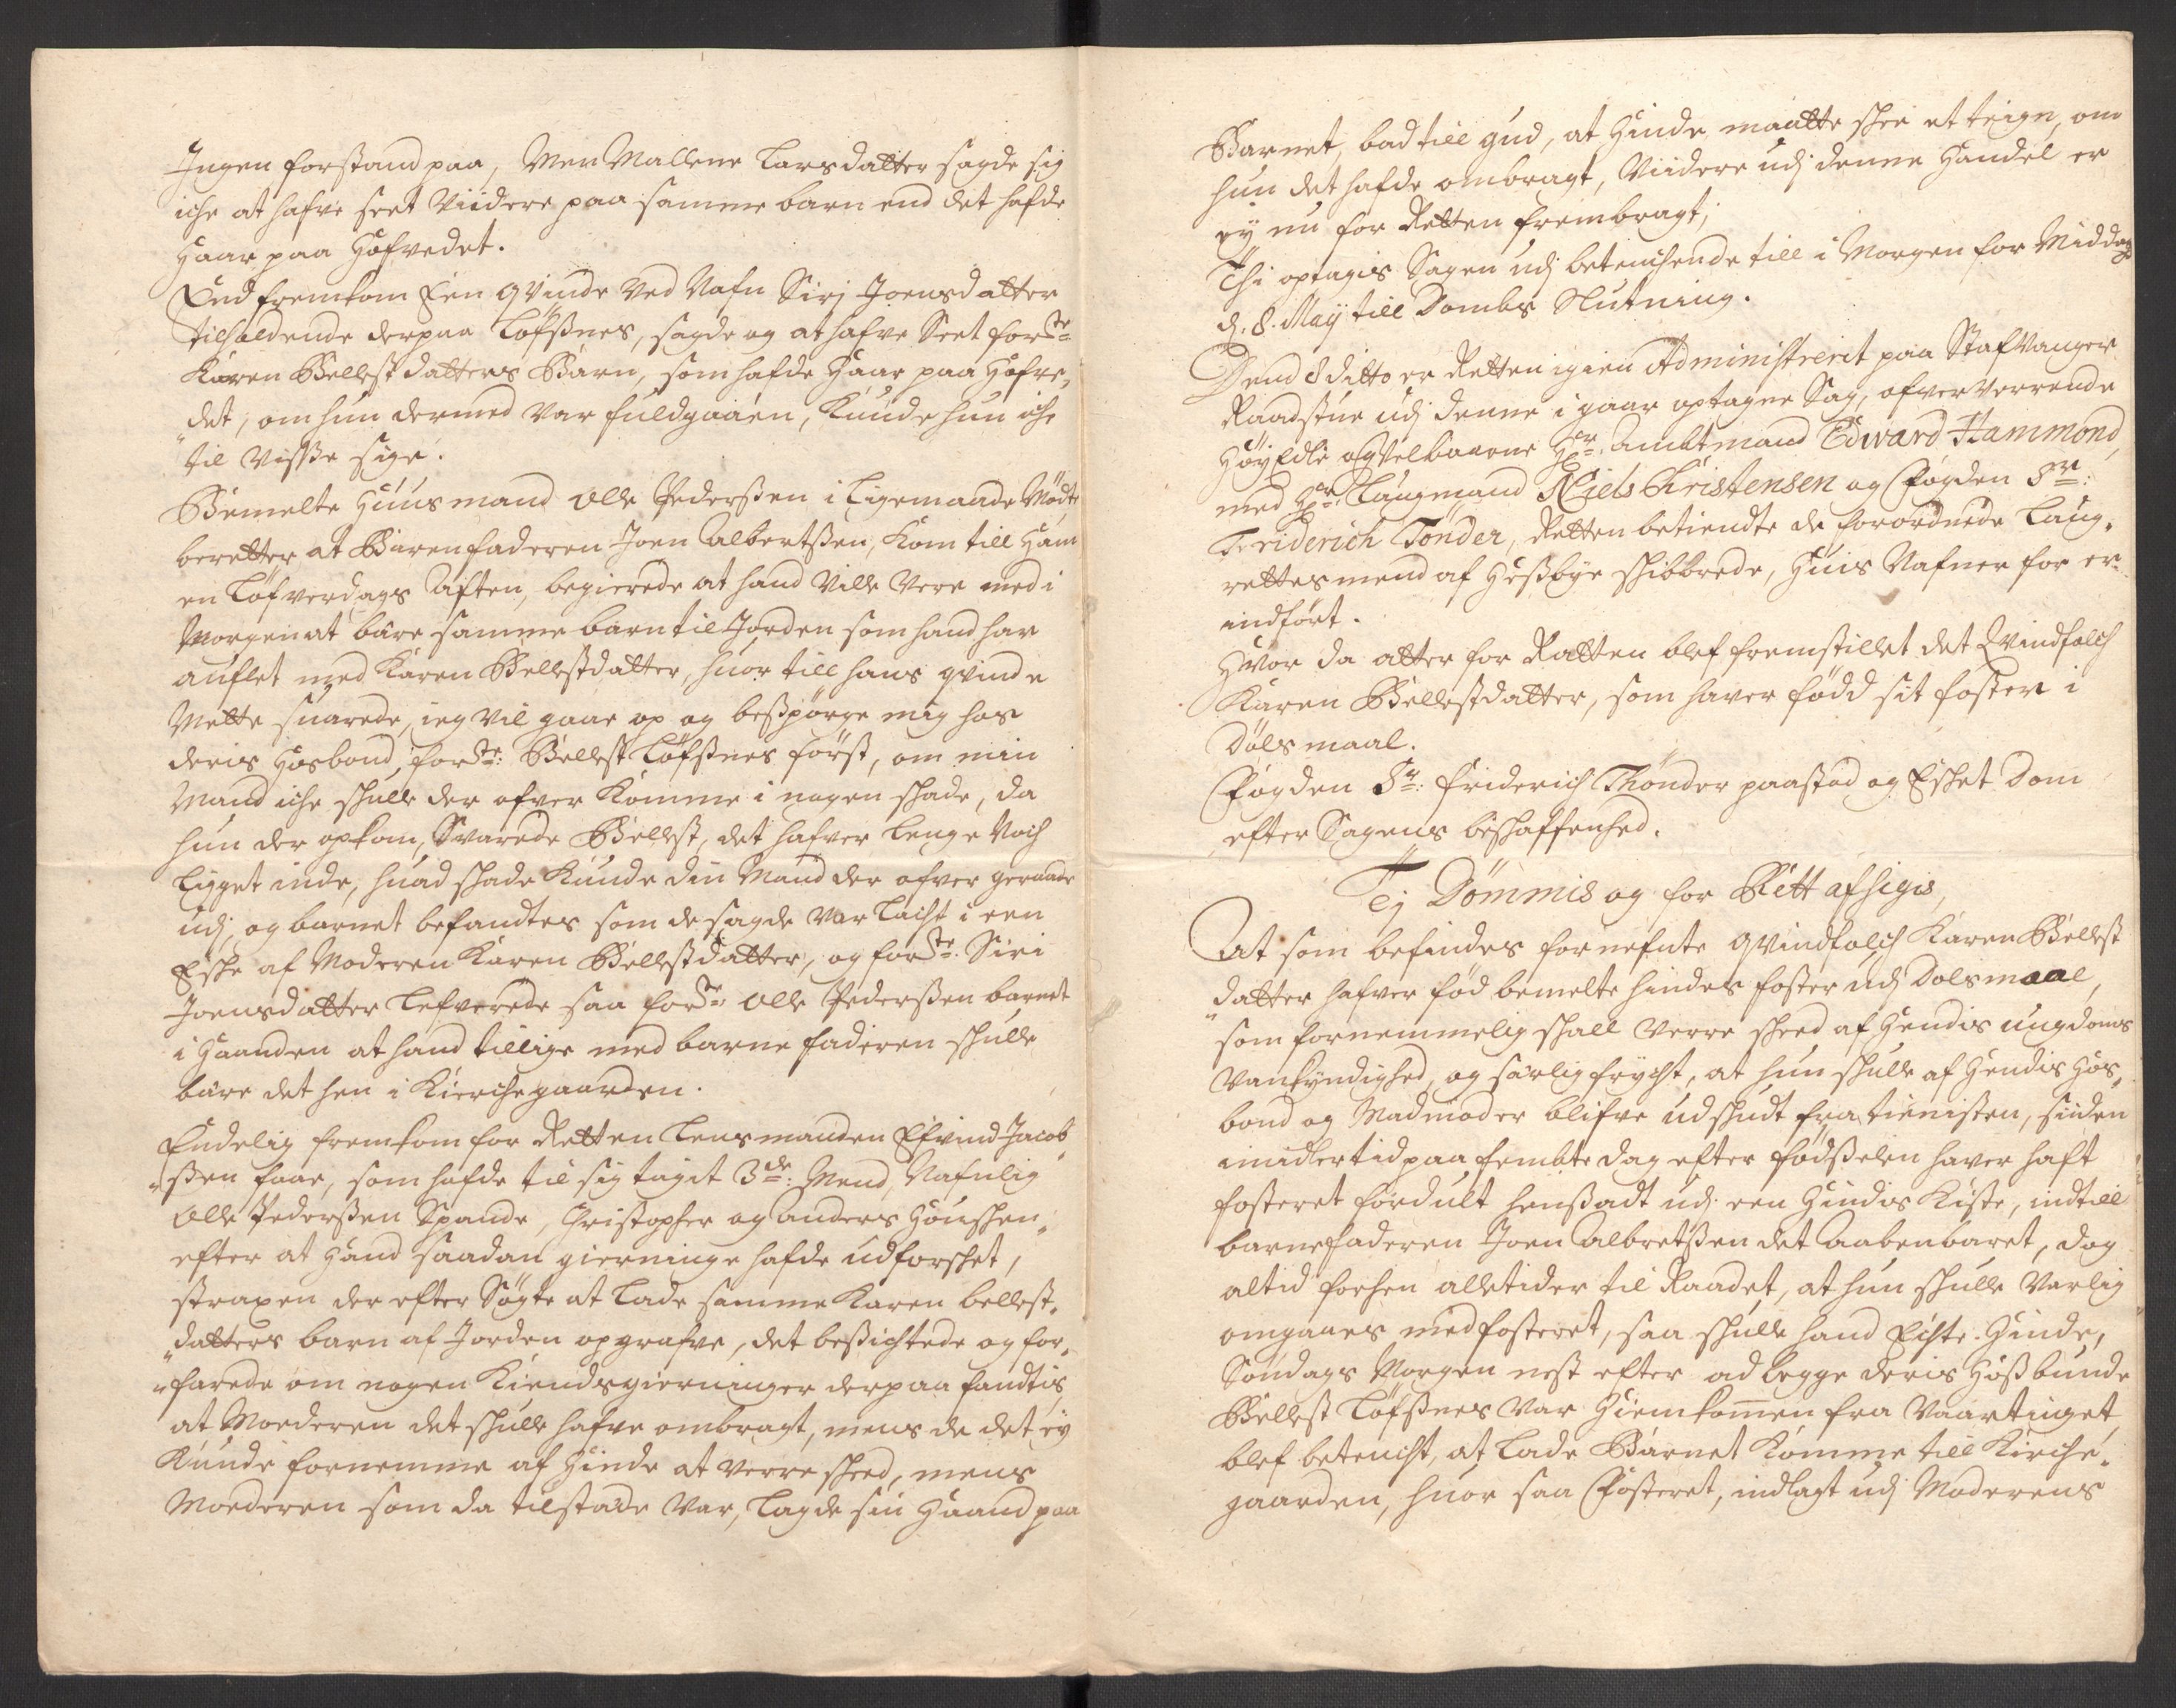 Ingen forstand paa, Men Mallene Larsdatter sagde sig
iche at hafve seet Viidere paa samme barn end det hafde
Haar paa Hofvedet.
End fremkom Een qvinde Ved Nafn Siri Joensdatter
tilholdende derpaa Løfsnes, sagde og at hafve Seet forste
Karen Bellestdatters Barn, som hafde Haar paa Hofve„
„det, om hun dermed Var fuldgaaen, Kunde hun iche
til Visse sige.
Bemelte Huusmand Olle Pederssen i ligemaade Mødte
beretter at Barenfaderen Joen Albertssen, Kom till Ham
en Løfverdags Aften, begierede at hand Ville Vere med i
Morgen at bære samme barn til Jorden som hand har
auflet med Karen Bellestdatter, huor till hans qvinde
Mette suarede, ieg vil gaae op og bespørge mig hos
deris Hosbond, forste: Bellest Løfsnes først, om min
Mand iche schulle der ofver Komme i nogen schade, da
hun der opkom, Svarede Bellest, det hafver lenge Noch
ligget inde, huad schade Kunde din Mand der ofver geraade
udj, og barnet befandtes som de sagde Var lacht i een
Esche af Moderen Karen Bellestdatter, og forste. Siri
Joensdatter lefverede saa forste: Olle Pederssen barnet
i Haanden at hand tillige med barne faderen schulle
bære det hen i Kierchegaarden.
Endelig fremkom for Retten Lensmanden Efvind Jacob„
„sen faae, som hafde til sig taget 3de: Mend, Nafnlig
Olle Pederssen Spande, Christopher og Anders Houschen„
efter at Hand saadan gierninge hafde udforschet,
straxen der efter Søgte at lade samme Karen bellest„
„datters barn af Jorden opgrafve, det besichtede og for„
„farede om nogen Kiendsgierninger derpaa fandtis,
at Moederen det schulle hafve ombragt, mens de det ey
Kunde fornemme af Hinde at verre scheed, mens
Moederen som da tilstæde Var, lagde sin Haand paa
Barnet, bad till gud, at Hinde maatte schee et teign, om
hun det hafde ombragt, Viidere udj denne Handel er
ey nu for Retten frembragt,
Thi optagis Sagen udj betenchende till i Morgen for Middag
d. 8. Maij till Dombs Slutning.
Dend 8 ditto er Retten igien Administrerit paa Stafvanger
Raadstue udj denne i gaar optagne Sag, ofververrende
HøyEdle og Velbaarne Hr: Ambtmand Edward Hammond,
med Hr: Laugmand Niels Christensen og Fogden Sr:
Friderich Tønder, Retten betiendte de forordnede Laug„
rettesmend af Hesbye schibbrede, Huis Nafner for er
indført.
Hvor da atter for Retten blef fremstillet det Qvindfolch
Karen Bellestdatter, som haver fødd sit foster i
Dølsmaal.
Fogden Sr: Friderich Thønder paastod og Eschet Dom
efter Sagens beschaffenhed.
Tej Dømmis og for Rett afsigis,
At som befindes fornefnte qvindfolch Karen Bellest
„datter hafver fød bemelte hindes foster udj Dolsmaal,
som fornemmelig schall verre scheed af Hendis ungdoms
Vankyndighed, og særlig frycht, at hun schulle af Hendis Hos„
bond og Madmoder blifve udschudt fra tienisten, siden
imidlertid paa fembte dag efter fødsselen haver haft
fosteret fordult henssadt udj een Hindis Kiste, indtill
barnefaderen Joen Albretssen det Aabenbaret, dog
altid forhen alletider til Raadet, at hun schulle Varlig
omgaaes med fosteret, saa schulle hand Echte Hinde,
Søndags Morgen nest efter ad legge deris Hossbunde
Bellest Løfsnes Var Hiemkommen fra Vaartinget
blef betencht, at lade Barnet Komme till Kirche„
gaarden, huor saa Fosteret, indlagt udj Moderens